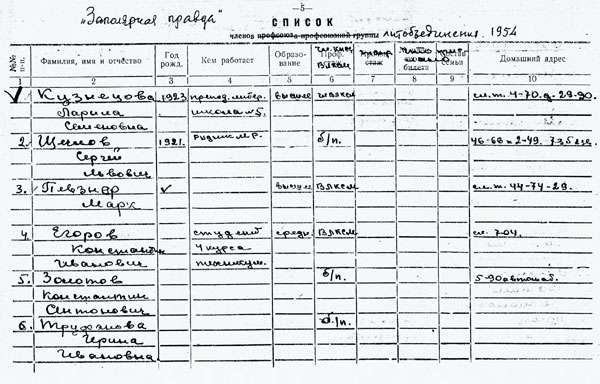 — 5 —
"Заполярная правда"
СПИСОК
членов профсоюза профсоюзной группы литобъединения. 1954
№№ п-п. Фамилия, имя и отчество Год рожд. Кем работает Образование чл. КПСС ВЛКСМ Проф. стаж билета семьи Домашний адрес
1 2 3 4 5 6 7 8 9 10
Кузнецова 1923 препод. литер. высшее сл. т. 4-70. д. 29-90.
Лариса школа № 5.
Семеновна
2. Щеглов 1921. б/п. 46-68 = 2-49.
Сергей
Львович
3. Певзнер высшее ВЛКСМ сл. т. 44-74-29.
Марк
4. Егоров студент средн. ВЛКСМ сл. 704.
Константин 4 курса
Иванович техникум.
5. Золотов б/п. 5-90 автомат.
Константин
Антонович
6. Труфанова б/п.
Ирина
Ивановна